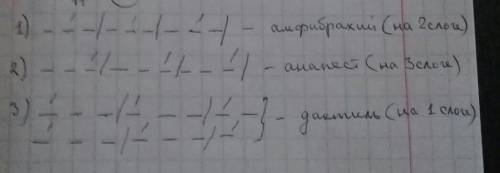 1) _ _́ _ / _ _́ _ / _ _́ _ / - амфибрахий (на 2 слог)
2) _ _ _́ / _ _ _́ / _ _ _́ / - анапест (на 3 слог)
3) _́ _ _ / _́ _ _ / _́ _ } - дактиль (на 1 слог)
_́ _ _ / _́ _ _ / _́